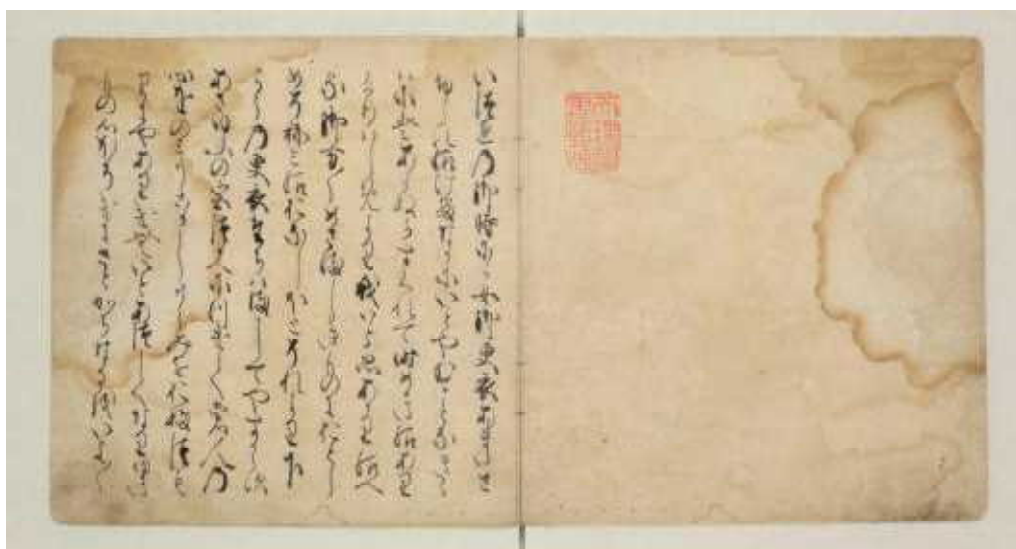 いつれの御時にか女御更衣あまたさ
ふらひ給ける中にいとやむことなきき
はにはあらぬかすくれて時めき給あり
けりはしめより我はと思あかり給へ
る御方〱めさましきものにおとし
めそねみ給おなしほとそれより下
らうの更衣たちはましてやすからす
あさゆふの宮つかへにつけても人の
心をのみうこかしうらみをおふつも
りにやありけむいとあつしくなりゆき
もの心ほそけにさとかちなるをいよ〱